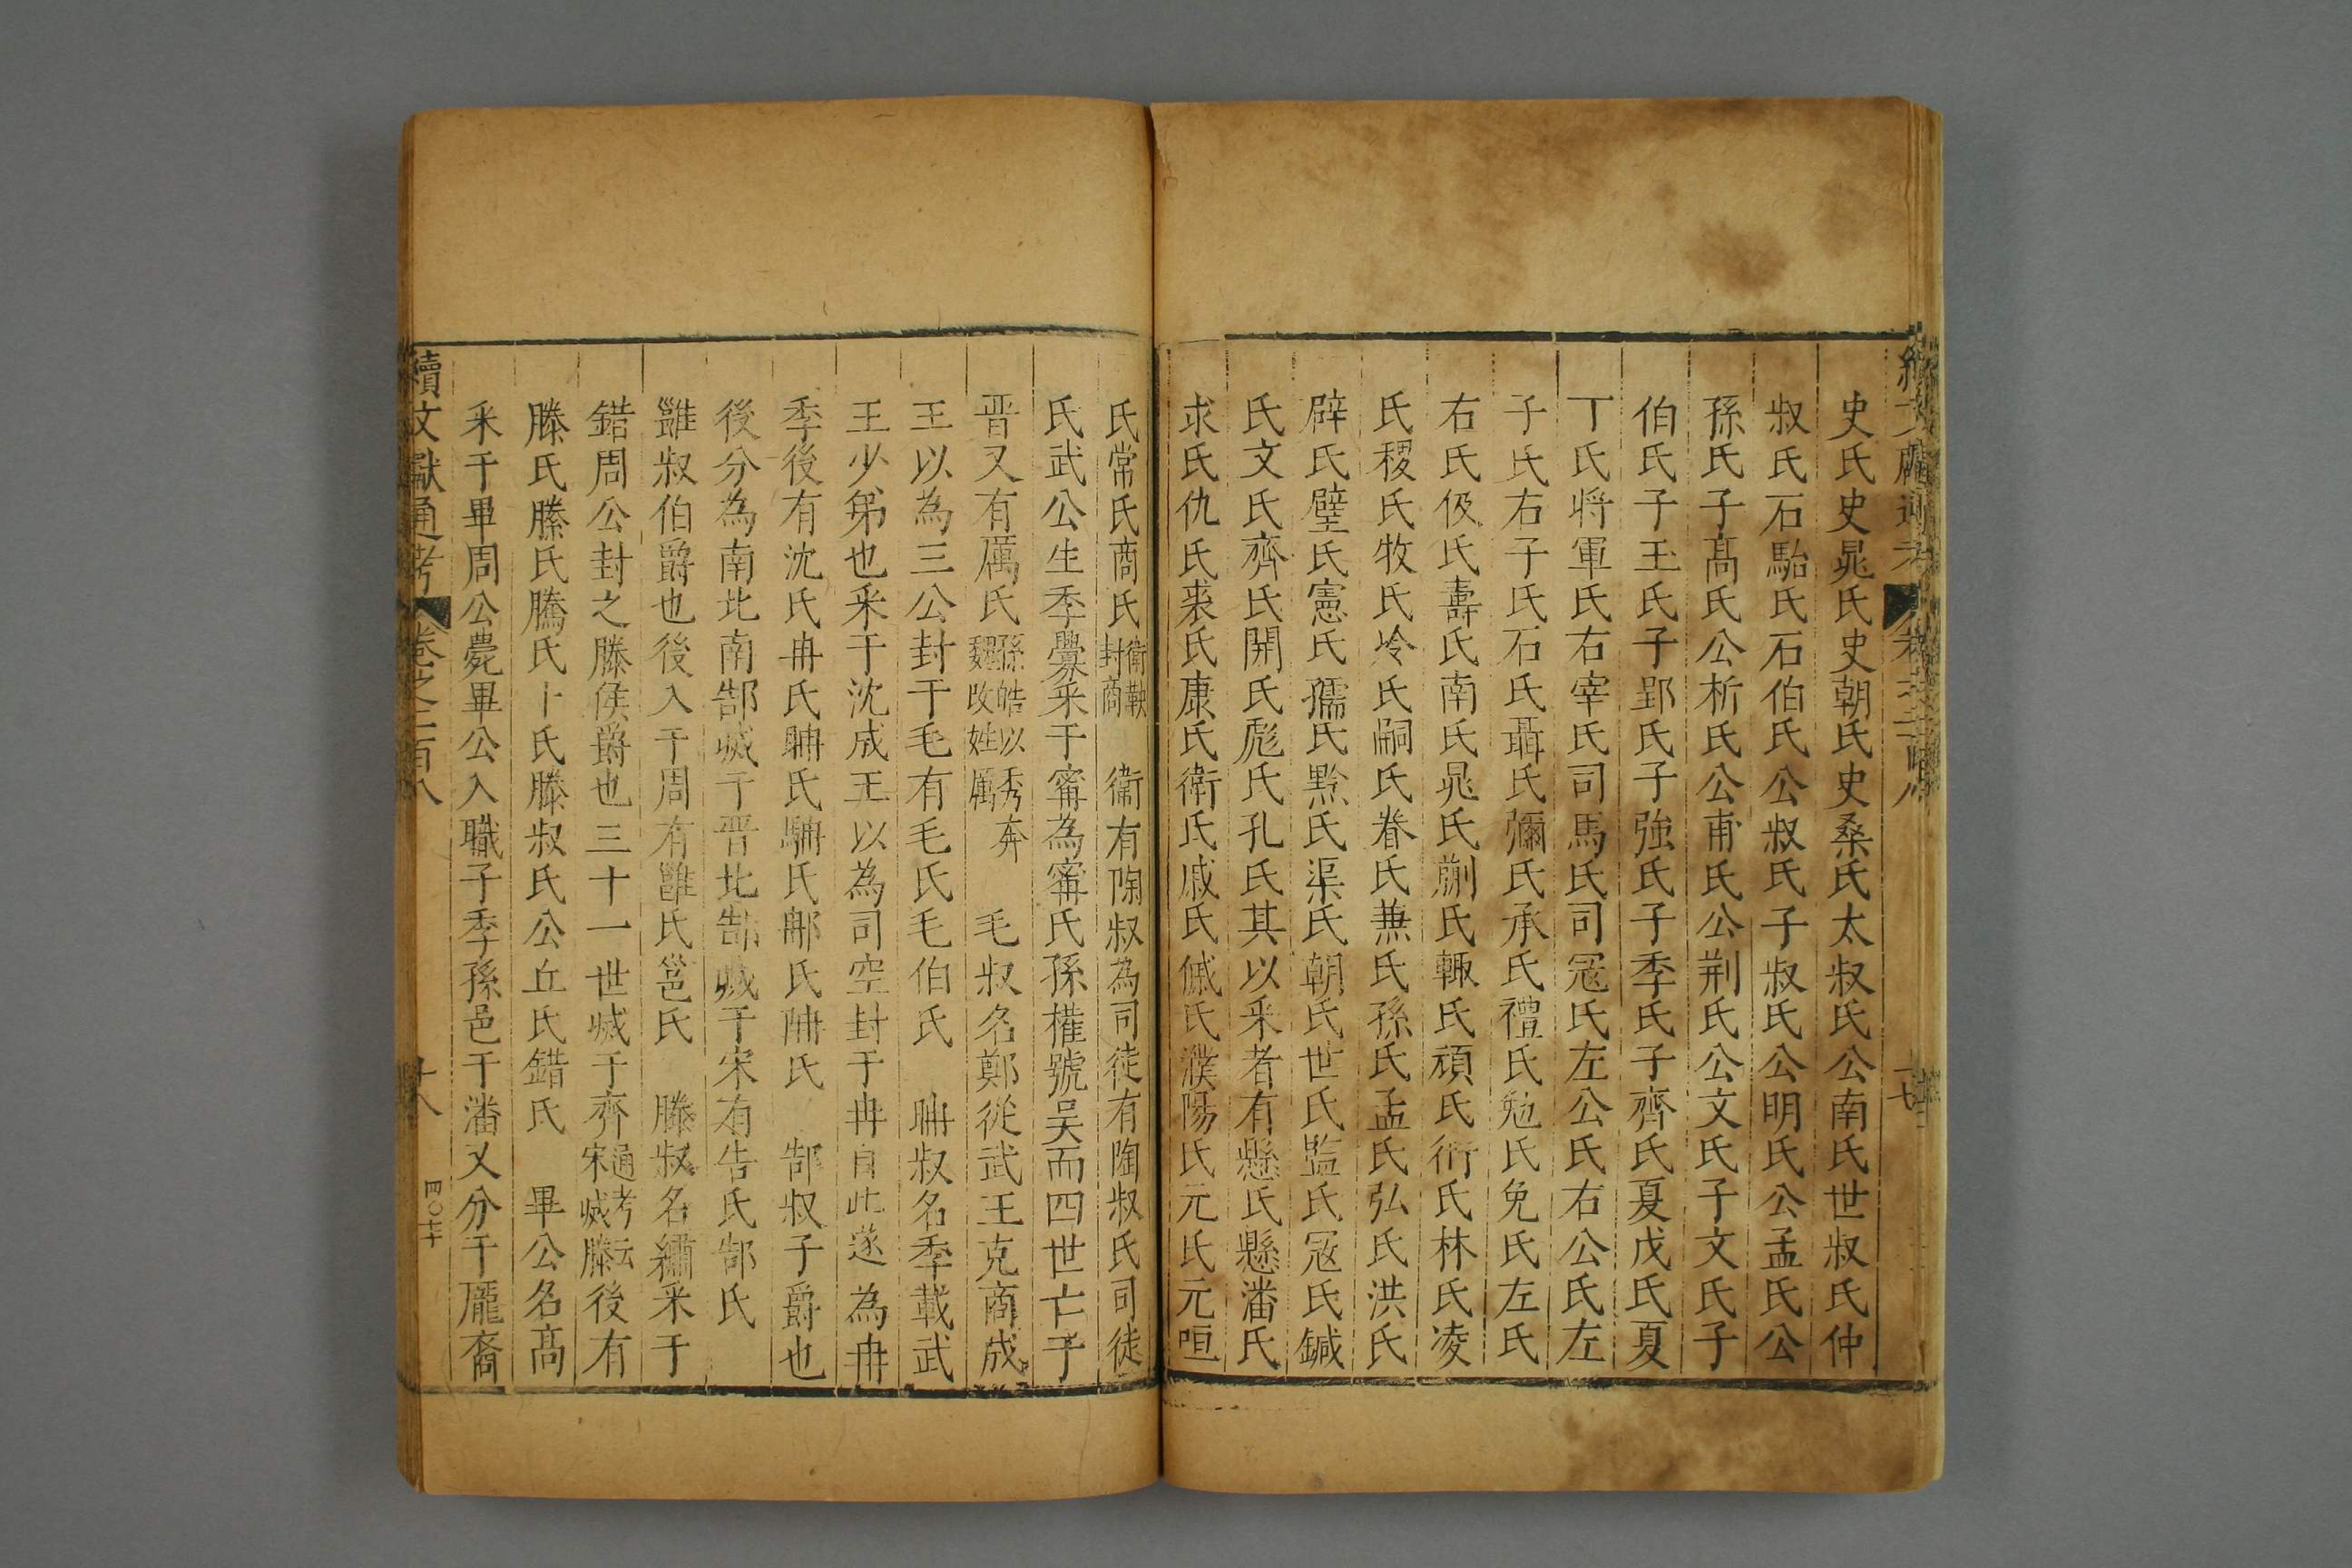 史氏史晁氏史朝氏史桑氏太叔氏公南氏世叔氏仲
叔氏石駘氏石伯氏公叔氏子叔氏公明氏公孟氏公
孫氏子髙氏公析氏公甫氏公荆氏公文氏子文氏子
伯氏子玉氏子郢氏子強氏子季氏子齊氏夏戊氏夏
丁氏將軍氏右宰氏司馬氏司冦氏左公氏右公氏左
子氏右子氏石氏聶氏彌氏承氏禮氏勉氏免氏左氏
右氏伋氏壽氏南氏晁氏蒯氏輒氏頑氏衎氏林氏凌
氏稷氏牧氏泠氏嗣氏眷氏蕪氏孫氏孟氏弘氏洪氏
辟氏璧氏憲氏孺氏黙氏渠氏朝氏世氏監氏冦氏鍼
氏文氏齊氏開氏彪氏孔氏其以采者有懸氏懸潘氏
求氏仇氏裘氏康氏衛氏戚氏傶氏濮陽氏元氏元咺
氏常氏商氏衛鞅封商 衞有陶叔為司徒有陶叔氏司徒
氏武公生季亹采于甯為甯氏孫權號吳而四世亡于
晋又有厲氏孫皓以秀奔魏改姓厲 毛叔名鄭從武王克商成
王以為三公封于毛有毛氏毛伯氏 聃叔名季載武
王少弟也采于沈成王以為司空封于冉自此遂為冉
季後有沈氏冉氏聃氏䎶氏䣸氏䎃氏 郜叔子爵也
後分為南北南郜滅于晋北郜滅于宋有告氏郜氏
雝叔伯爵也後入于周有雝氏邕氏 滕叔名繡采于
錯周公封之滕侯爵也三十一世滅于齊通考云宋滅滕後有
滕氏縢氏騰氏卜氏滕叔氏公丘氏錯氏 畢公名髙
采于畢周公薨畢公入職子季孫邑于潘又分于龎裔
續文獻通考 卷之二百八 十八 四〇十